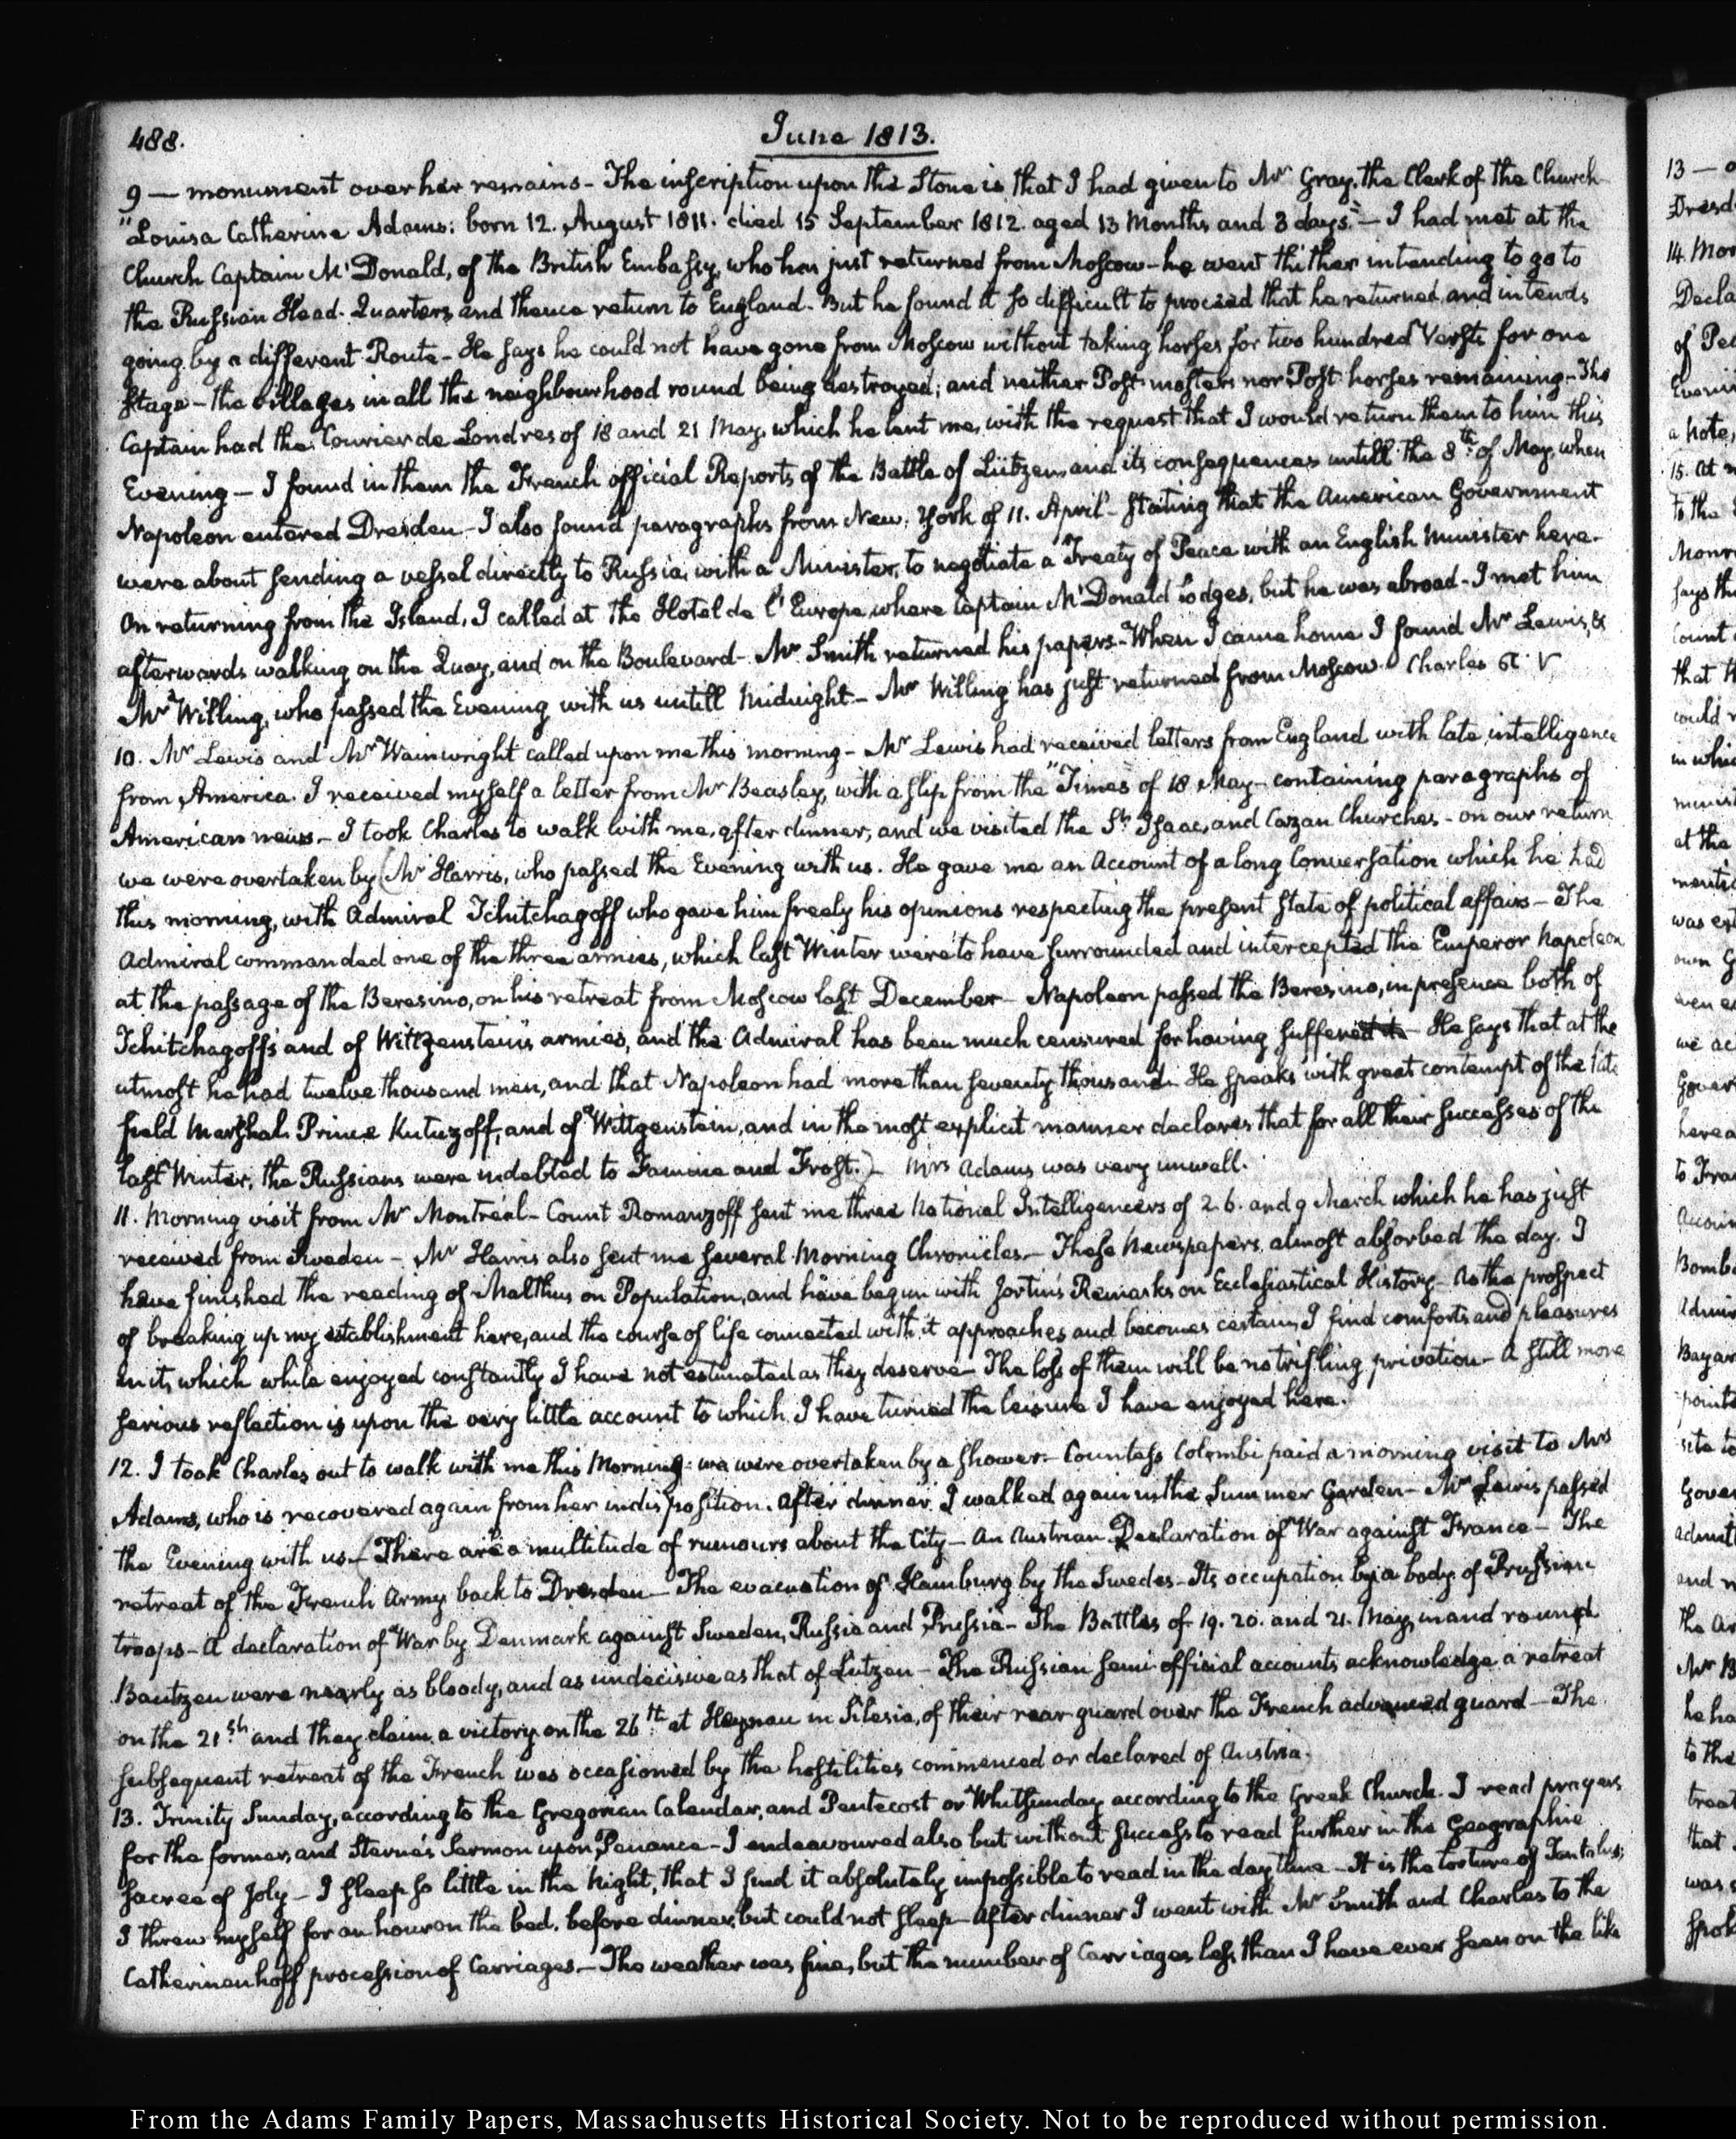 488.
June 1813.
9 — monument over her remains - The inscription upon the Stone is that I had given to Mr Gray, the Clerk of the Church
"Louisa Catherine Adams: born 12. August 1811. died 15 September 1812. aged 13 Months and 3 days." — I had met at the
Church Captain Mc Donald, of the British Embassy, who has just returned from Moscow - he went thither intending to go to
the Russian Head-Quarters, and thence return to England. But he found it so difficult to proceed that he returned, and intends
going by a different Route - He says he could not have gone from Moscow without taking horses for two hundred Versts for one
Stage - the villages in all the neighbourhood round being destroyed; and neither Post-masters nor Post-horses remaining - The
Captain had the Courier de Londres of 18 and 21 May, which he lent me, with the request that I would return them to him this
Evening — I found in them the French official Reports of the Battle of Lützen and its consequences untill the 8th of May, when
Napoleon entered Dresden - I also found paragraphs from New-York of 11. April - stating that the American Government
were about sending a vessel directly to Russia, with a Minister, to negotiate a Treaty of Peace with an English Minister here.
On returning from the Island, I called at the Hotel de l'Europe, where Captain Mc Donald lodges, but he was abroad - I met him
afterwards walking on the Quay, and on the Boulevard - Mr Smith returned his papers - When I came home I found Mr Lewis, &
Mr Willing, who passed the Evening with us untill Midnight - Mr Willing has just returned from Moscow. Charles
10. Mr Lewis and Mr Wainwright called upon me this morning - Mr Lewis had received letters from England with late intelligence
from America. I received myself a letter from Mr Beasley, with a slip from the "Times" of 18 May - containing paragraphs of
American news. - I took Charles to walk with me, after dinner; and we visited the St Isaac, and Cazan Churches - on our return
we were overtaken by (Mr Harris, who passed the Evening with us. He gave me an Account of a long Conversation which he had
this morning, with Admiral Tchitchagoff who gave him freely his opinions respecting the present state of political affairs - The
Admiral commanded one of the three armies, which last Winter were to have surrounded and intercepted the Emperor Napoleon
at the passage of the Beresino, on his retreat from Moscow last December - Napoleon passed the Beresino, in presence both of
Tchitchagoff's and of Wittgenstein's armies, and the Admiral has been much censured for having suffered it - He says that at the
utmost he had twelve thousand men, and that Napoleon had more than seventy thousand. He speaks with great contempt of the late
field Marshal Prince Kutuzoff, and of Wittgenstein, and in the most explicit manner declares that for all their successes of the
last Winter, the Russians were indebted to Famine and Frost.) - Mrs Adams was very unwell.
11. Morning visit from Mr Montréal - Count Romanzoff sent me three National Intelligencers of 2. 6. and 9 March which he has just
received from Sweden - Mr Harris also sent me several Morning Chronicles. - These Newspapers, almost absorbed the day. I
have finished the reading of Malthus on Population, and have begun with Jortin's Remarks on Ecclesiastical History - As the prospect
of breaking up my establishment here, and the course of life connected with it approaches and becomes certain, I find comforts and pleasures
in it, which while enjoyed constantly I have not estimated as they deserve - The loss of them will be no trifling privation - A still more
serious reflection is upon the very little account to which I have turned the leisure I have enjoyed here.
12. I took Charles out to walk with me this Morning - we were overtaken by a shower - Countess Colombi paid a morning visit to Mrs
Adams, who is recovered again from her indisposition. After dinner I walked again in the Summer Garden - Mr Lewis passed
the Evening with us - (There are a multitude of rumours about the City - An Austrian Declaration of War against France - The
retreat of the French Army back to Dresden - The evacuation of Hamburg by the Swedes - Its occupation by a body of Prussian
troops - A declaration of War by Denmark against Sweden, Russia and Prussia - The Battles of 19. 20. and 21. May, in and round
Bautzen were nearly as bloody, and as undecisive as that of Lutzen - The Russian semi-official accounts acknowledge a retreat
on the 21st and they claim a victory on the 26th at Haynau in Silesia, of their rear guard over the French advanced guard - The
subsequent retreat of the French was occasioned by the hostilities commenced or declared of Austria.
13. Trinity Sunday, according to the Gregorian Calendar, and Pentecost or Whitsunday according to the Greek Church. I read prayers
for the former, and Sterne's Sermon upon Penance - I endeavoured also but without success to read further in the Geographie
sacree of Joly - I sleep so little in the Night, that I find it absolutely impossible to read in the day time - It is the torture of Tantalus;
I threw myself for an hour on the bed, before dinner, but could not sleep - After dinner I went with Mr Smith and Charles to the
Catherinenhoff procession of Carriages - The weather was fine, but the number of Carriages less than I have ever seen on the like
From the Adams Family Papers, Massachusetts Historical Society. Not to be reproduced without permission.